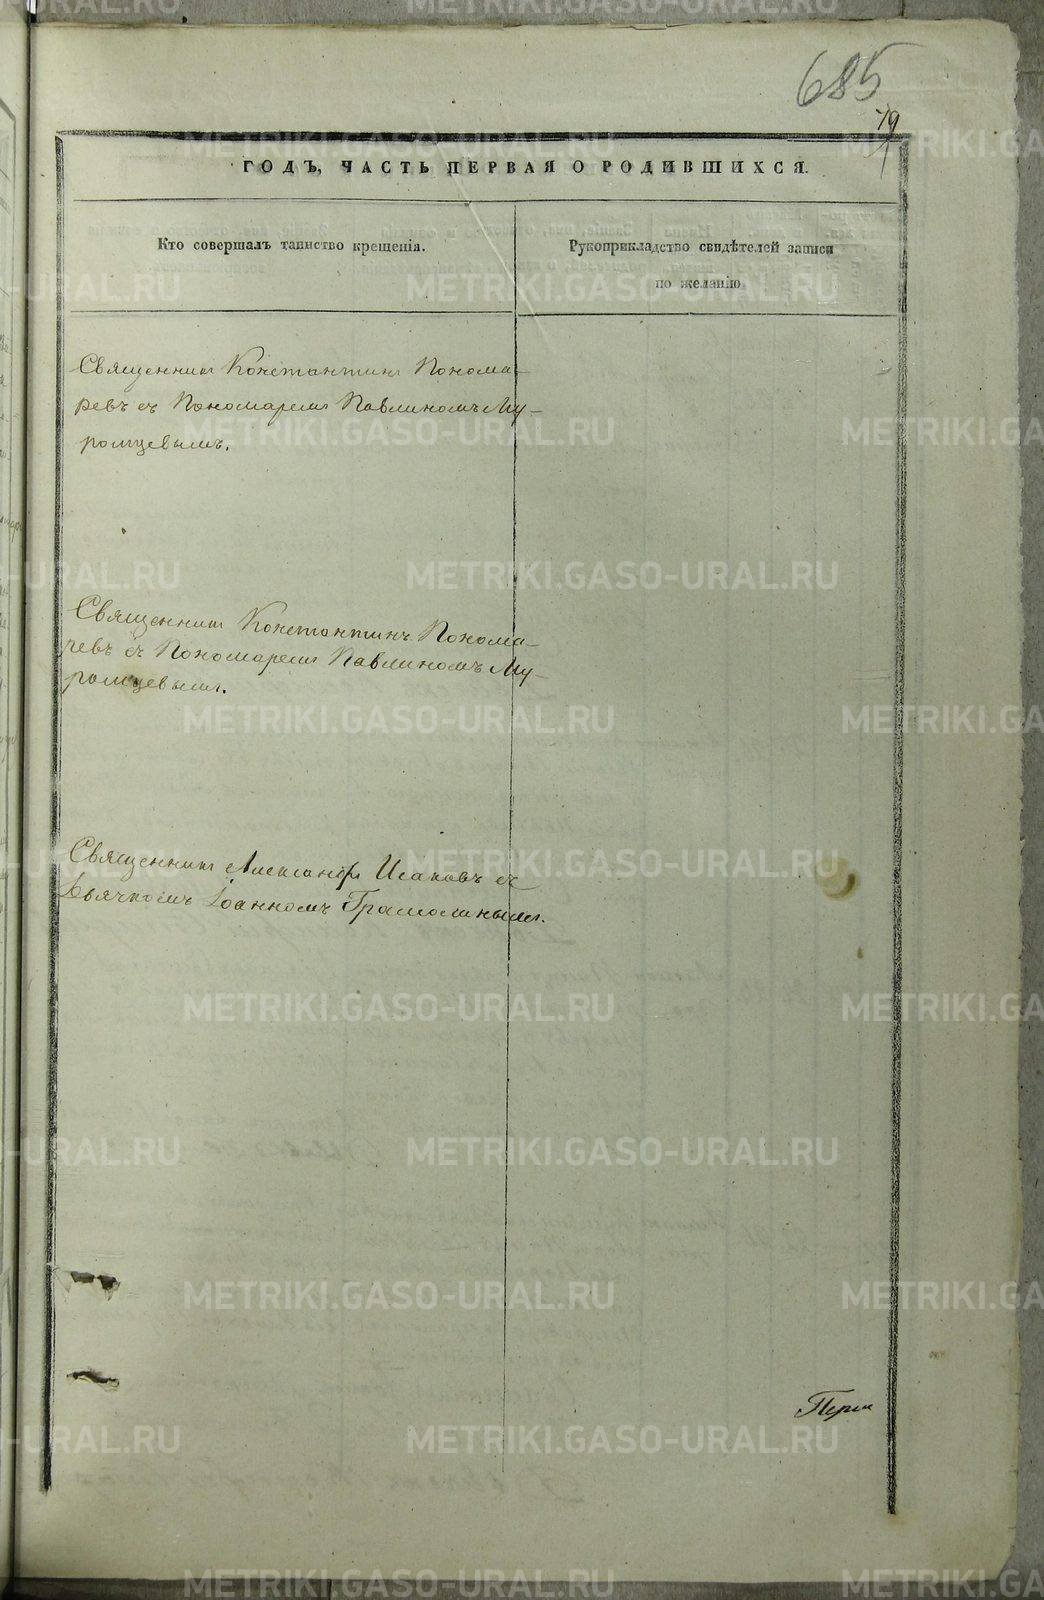 685
79
ГОДЪ, ЧАСТЬ ПЕРВАЯ О РОДИВШИХСЯ.
Кто совершалъ таинство крещенія.
Рукоприкладство свидѣтелей записи
по желанію.
Священникъ Константинъ Понома-
ревъ съ Пономаремъ Павлиномъ Му-
ромцевымъ.
Священникъ Константинъ Понома-
ревъ съ Пономаремъ Павлиномъ Му-
ромцевымъ.
Священникъ Александръ Исаковъ съ
Дьячкомъ Іоанномъ Грамолинымъ.
METRIKI.GASO-URAL.RU